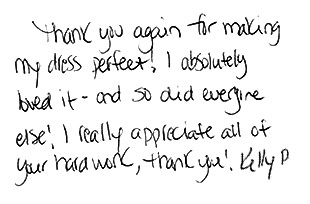 Thank you again for making
my dress perfect! I absolutely
loved it - and so did everyone
else! I really appreciate all of
your hard work, thank you! Kelly P